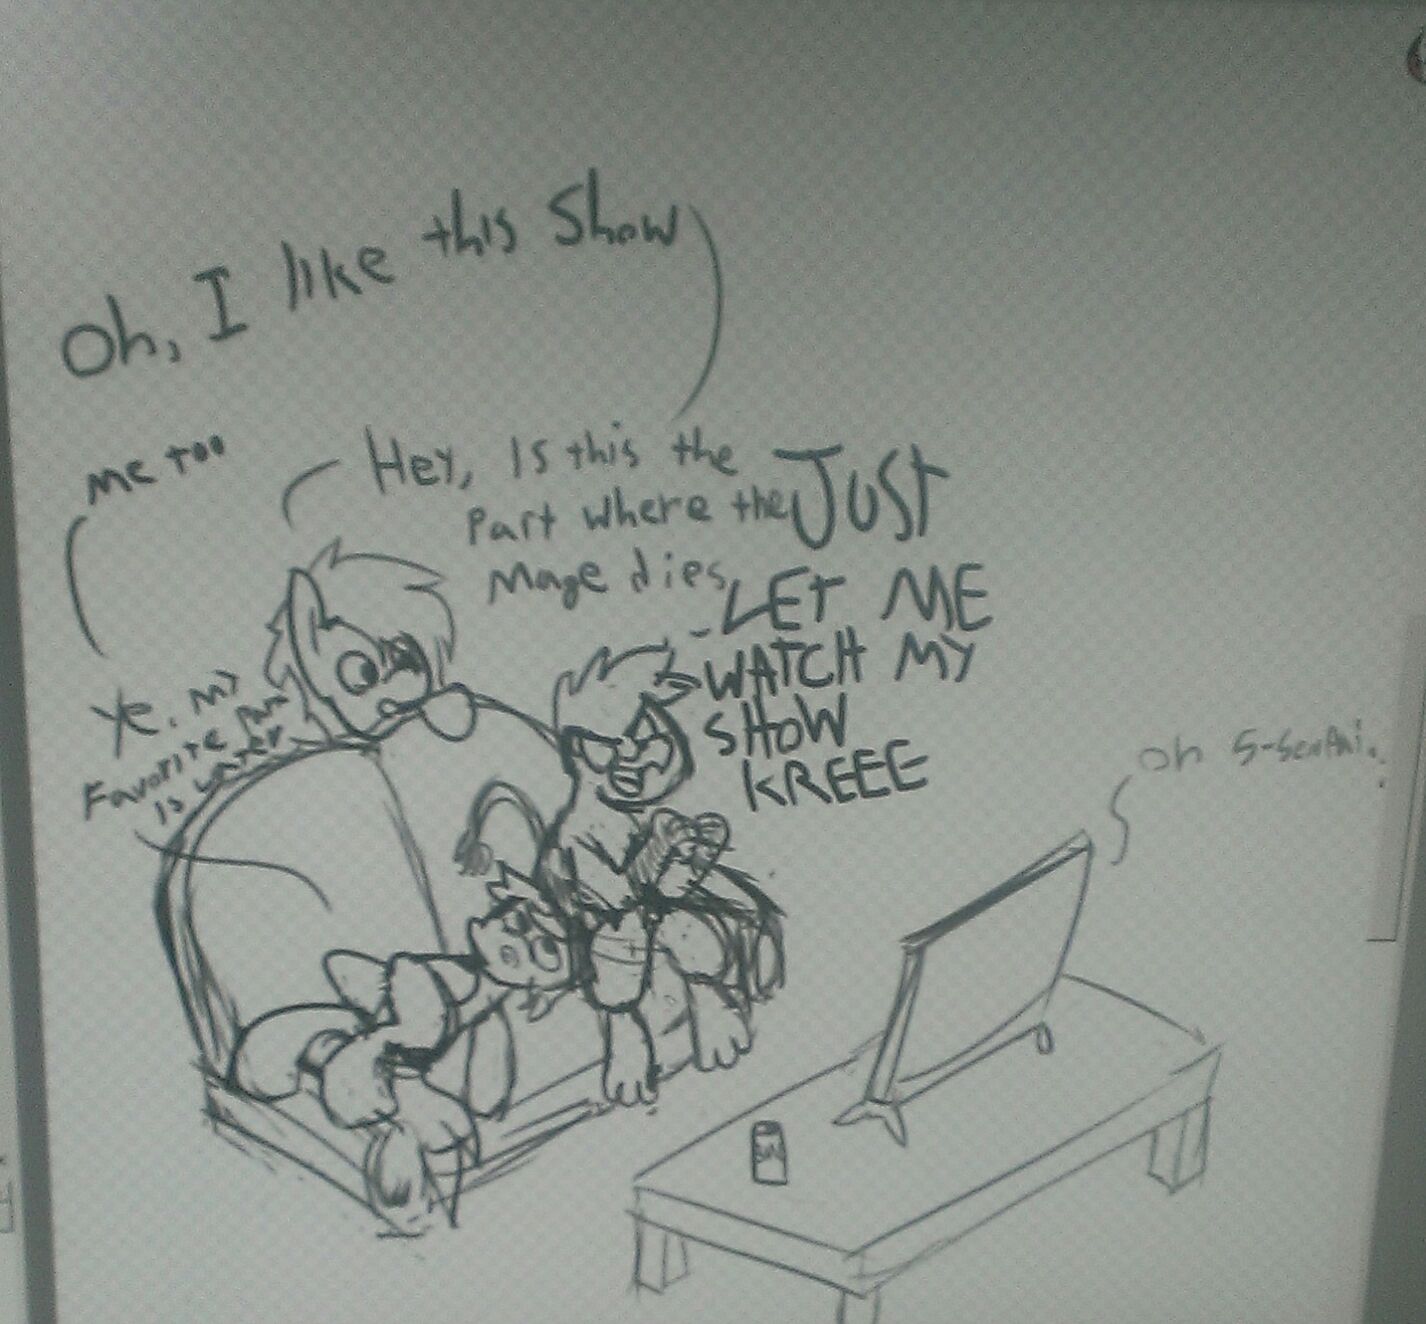 Oh, I like this Show
me too
Hey, Is this the
Part where the
Mage dies
JUST
LET ME
WATCH MY
SHOW
KREEE
Ye. my
Favorite part
is water
Oh S-Senpai..